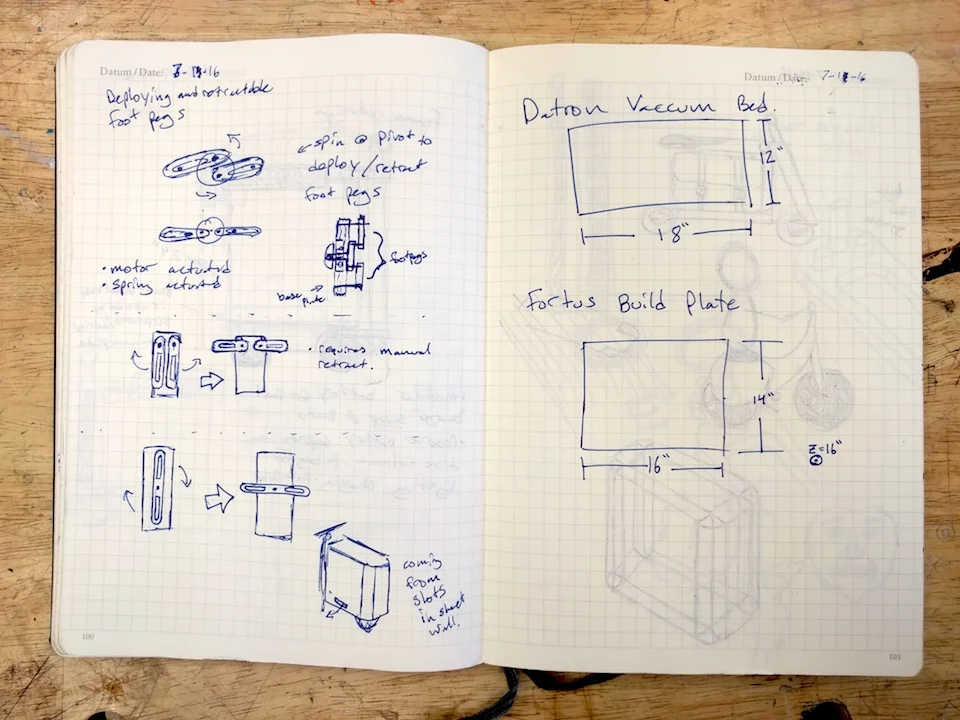 Datum/Date: 7-18-16
Deploying and retractable
foot pegs
spin @ pivot to
deploy/retract
foot pegs
• motor actuated
• spring actuated
footpegs
base
plate
• requires manual
retract.
coming
from
slots
in sheet
wall.
100
Datum/Date: 7-18-16
Datron Vaccum Bed.
12"
18"
Fortus Build Plate
14"
16"
Z=16"
101